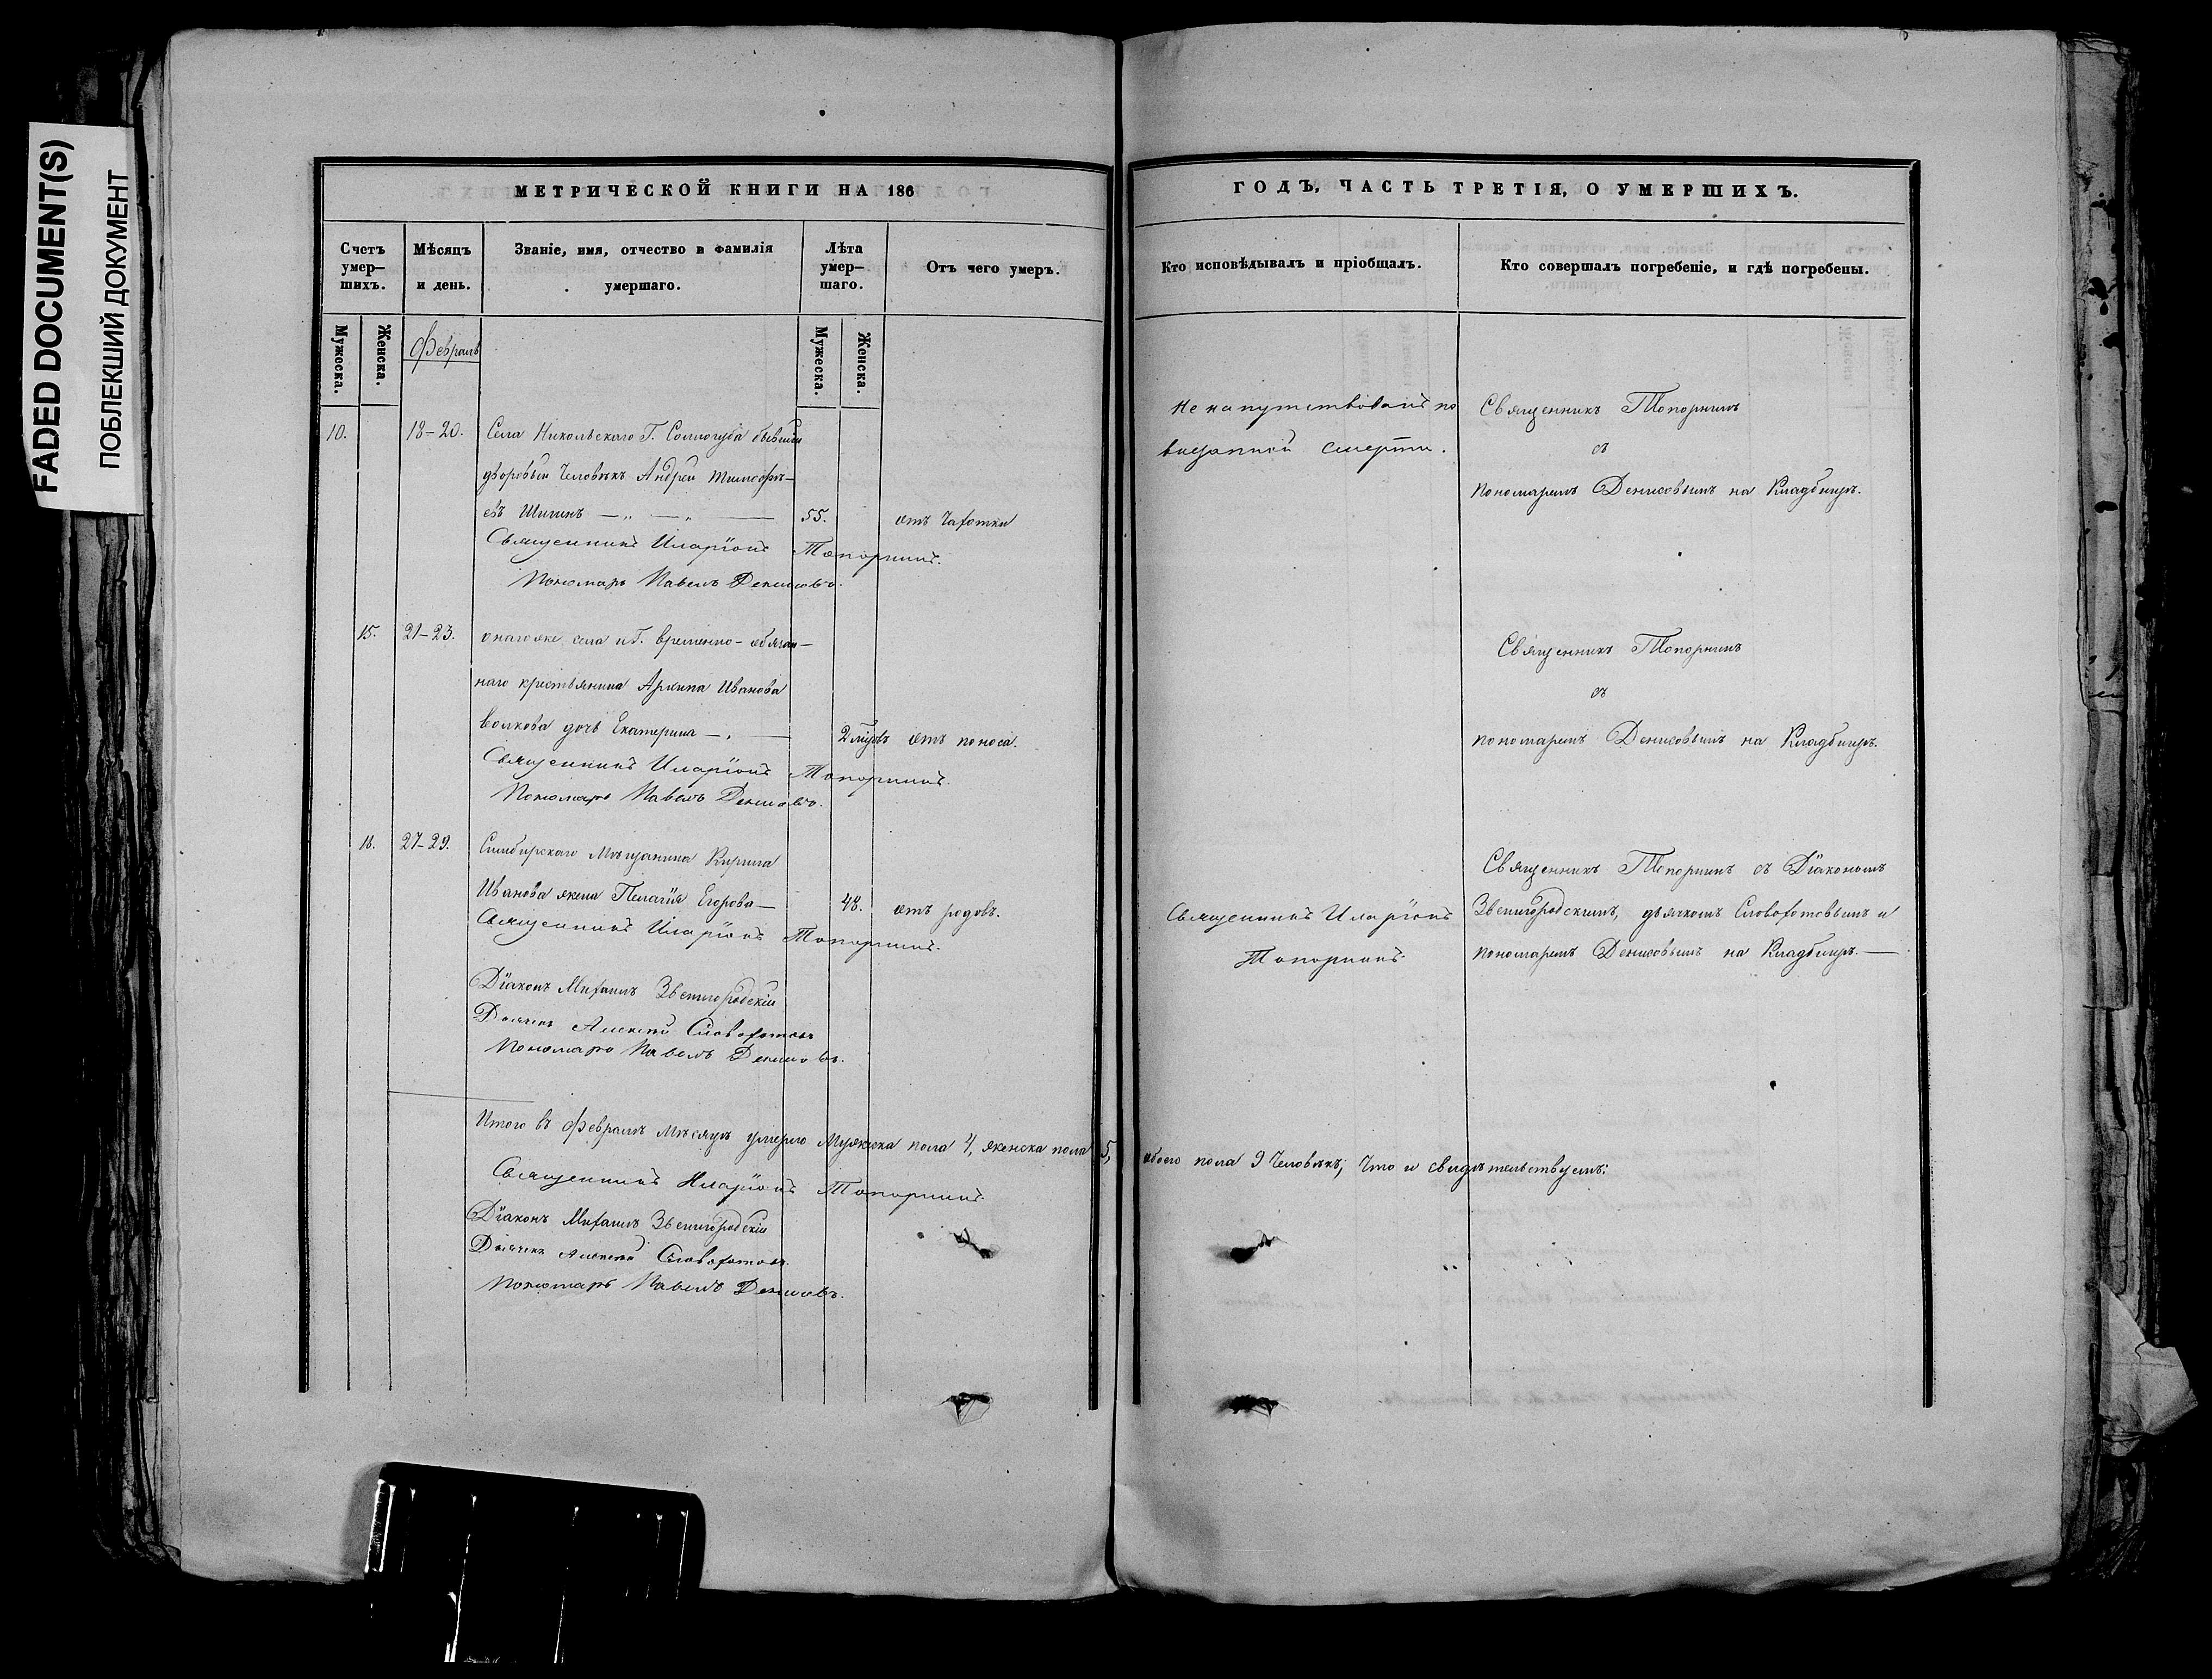 FADED DOCUMENT(S)
ПОБЛЕКШИЙ ДОКУМЕНТ
МЕТРИЧЕСКОЙ КНИГИ НА 186
Счетъ умер–шихъ.
Мѣсяцъ и день.
Званіе, имя, отчество и фамилія умершаго.
Лѣта умер–шаго.
Отъ чего умеръ.
Мужеска.
Женска.
Февраль
Мужеска.
Женска.
10.
18–20.
Села Никольскаго Г. Соллогуба бывшій
дворовый Человѣкъ Андрей Тимофѣ–
евъ Шигинъ
55.
отъ Чахотки
Священникъ Иларіонъ Топорнинъ.
Пономарь Павелъ Денисовъ.
15.
21–23.
онагоже села и Г. временно–обязан–
наго крестьянина Архипа Иванова
Волкова дочь Екатерина
2 
отъ поноса.
Священникъ Иларіонъ Топорнинъ.
Пономарь Павелъ Денисовъ.
18.
27–29.
Симбирскаго Мѣщанина Кирила
Иванова жена Пелагія Егорова
48.
отъ родовъ.
Священникъ Иларіонъ Топорнинъ.
Діаконъ Михаилъ Звенигородскій
Дьячекъ Алексей Словохотовъ
Пономарь Павелъ Денисовъ.
Итого въ Февралѣ Мѣсяцѣ умерло Мужеска пола 4, женска пола 5,
Священникъ Иларіонъ Топорнинъ.
Діаконъ Михаилъ Звенигородскій
Дьячекъ Алексей Словохотовъ.
Пономарь Павелъ Денисовъ.
ГОДЪ, ЧАСТЬ ТРЕТІЯ, О УМЕРШИХЪ.
Кто исповѣдывалъ и пріобщалъ.
Кто совершалъ погребеніе, и гдѣ погребены.
Не напутствованъ по
внезапной смерти.
Священникъ Топорнинъ
съ
пономаремъ Денисовымъ на Кладбищѣ.
Священникъ Топорнинъ
съ
пономаремъ Денисовымъ на Кладбищѣ.
Священникъ Иларіонъ
Топорнинъ.
Священникъ Топорнинъ съ Діакономъ
Звенигородскимъ, дьячкомъ Словохотовымъ и
пономаремъ Денисовымъ на Кладбищѣ.
обоего пола 9 Человѣкъ; Что и свидѣтельствуемъ: